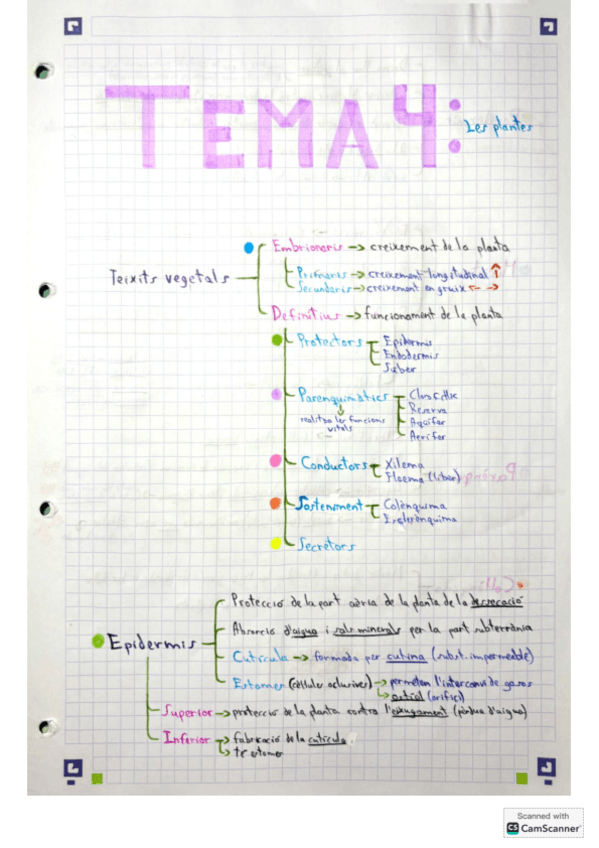 TEMA 4:
Les plantes
Teixits vegetals
Embrionaris → creixement de la planta
Primaris → creixement longitudinal ↑
Secundaris → creixement en gruix ← →
Definitius → funcionament de la planta
Protectors
Epidermis
Endodermis
Súber
Parenquimàtics
realitza les funcions
vitals
Clorofílic
Reserva
Aquífer
Aerífer
Conductors
Xilema
Floema (liber)
Sosteniment
Colènquima
Esclerènquima
Secretors
Epidermis
Protecció de la part aèria de la planta de la dessecació
Absorció d'aigua i sals minerals per la part subterrània
Cutícula → formada per cutina (subst. impermeable)
Estomes (cèl·lules oclusives) → permeten l'intercanvi de gasos
ostíol (orifici)
Superior → protecció de la planta contra l'eixugament (pèrdua d'aigua)
Inferior → fabricació de la cutícula
té estomes
Scanned with
CS CamScanner